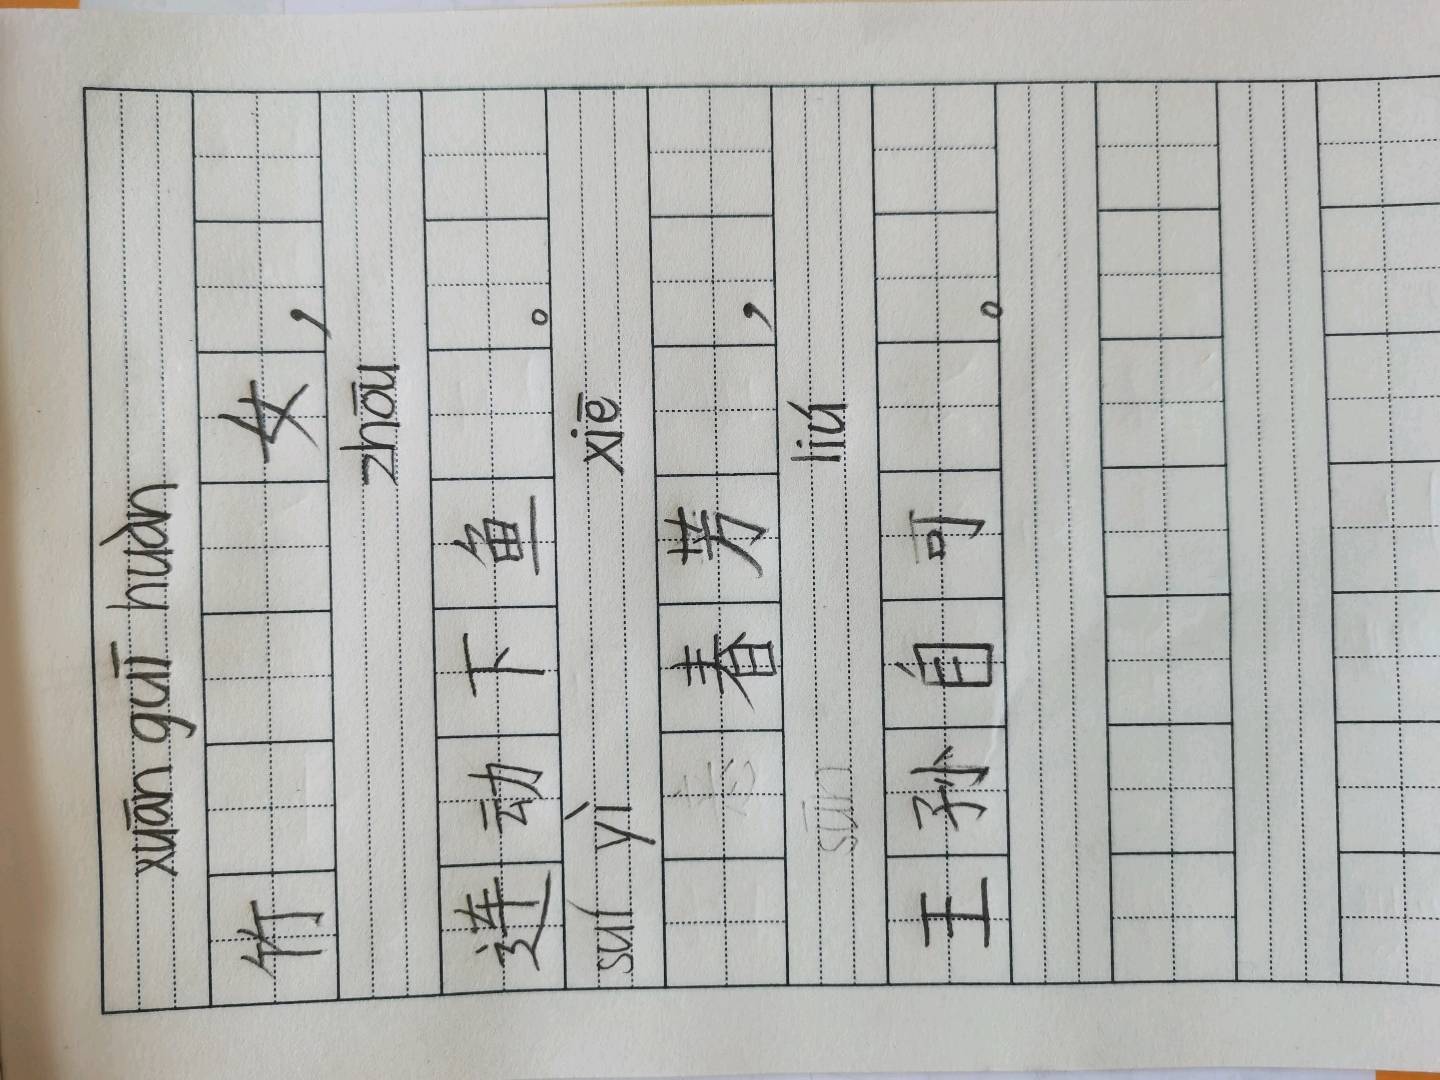 xuān guī huàn
竹 女，
zhōu
连动下鱼 。
suí yì xiē
春芳 ，
sūn liú
王孙自可 。